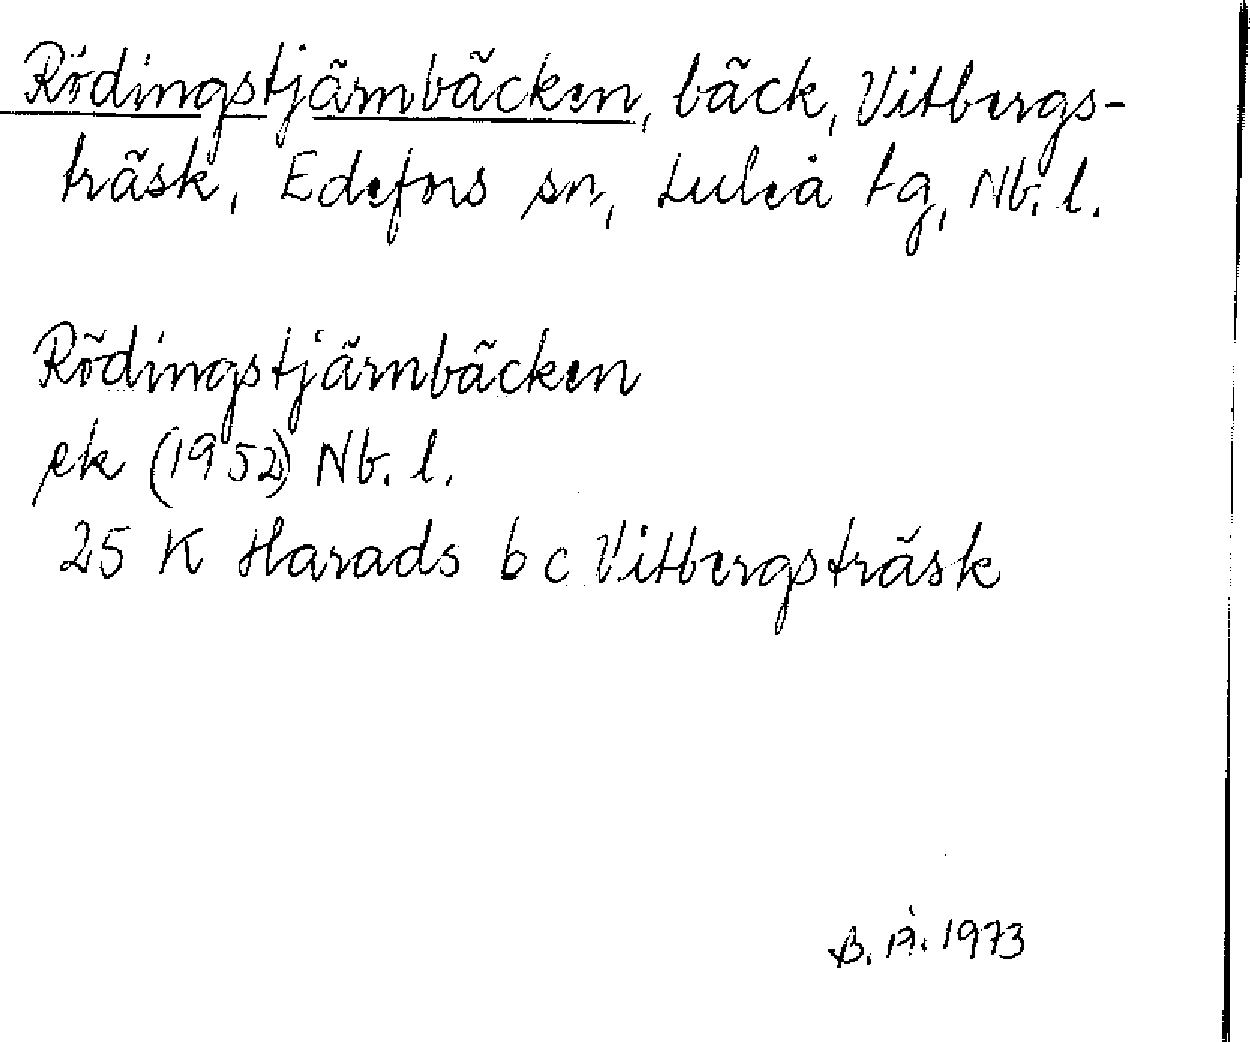 Rödingstjärnbäcken, bäck, Vitbergs-
träsk, Edefors sn, Luleå tg, Nb. l.
Rödingstjärnbäcken
ek (1952) Nb. l.
25 K Harads b c Vitbergsträsk
B. Å. 1973